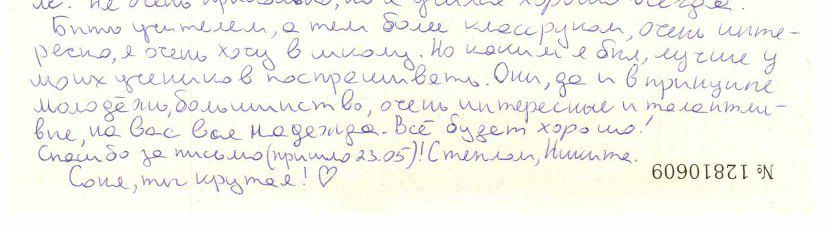 но я учился хорошо всегда.
Быть учителем, а тем более классруком, очень инте-
ресно, я очень хочу в школу. Но каким я был, лучше у
моих учеников поспрашивать. Они, да и в принципе
молодёжь, большинство, очень интересные и талантли-
вые, на вас вся надежда. Всё будет хорошо!
Спасибо за письмо (пришло 23.05)! С теплом, Никита.
Соня, ты крутая! ♡
№ 12810609